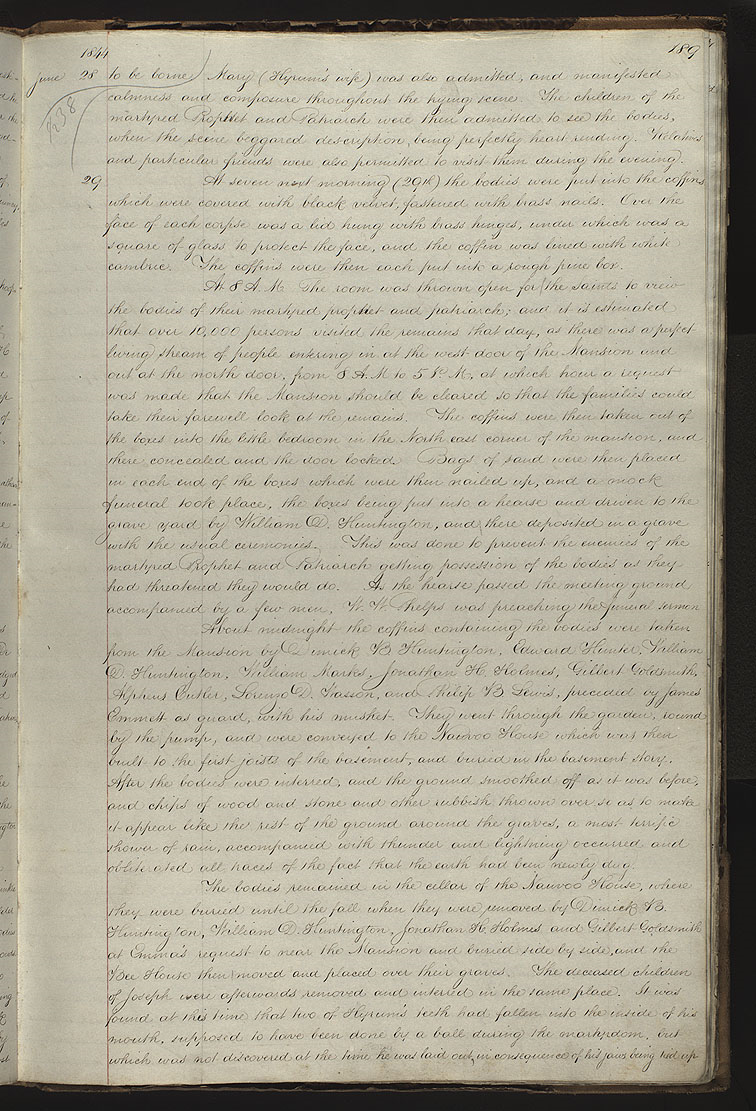 1844 189
June 28 to be borne) Mary (Hyrum's wife) was also admitted, and manifested
calmness and composure throughout the trying scene. The children of the
338
martyred Prophet and Patriarch were then admitted to see the bodies,
when the scene beggared description, being perfectly heart rending. Relatives
and particular friends were also permitted to visit them during the evening.
29 At seven next morning (29th) the bodies were put into the coffins
which were covered with black velvet, fastened with brass nails. Over the
face of each corpse was a lid hung with brass hinges, under which was a
square of glass to protect the face, and the coffin was lined with white
cambric. The coffins were then each put into a rough pine box.
At 8 A.M. The room was thrown open for the saints to view
the bodies of their martyred prophet and patriarch; and it is estimated
that over 10,000 persons visited the remains that day, as there was a perfect
living stream of people entering in at the west door of the Mansion and
out at the north door, from 8 A.M to 5 P.M, at which hour a request
was made that the Mansion should be cleared so that the families could
take their farewell look at the remains. The coffins were then taken out of
the boxes into the little bedroom in the North east corner of the mansion, and
there concealed and the door locked. Bags of sand were then placed
in each end of the boxes which were then nailed up, and a mock
funeral took place, the boxes being put into a hearse and driven to the
grave yard by William D. Huntington, and there deposited in a grave
with the usual ceremonies. This was done to prevent the enemies of the
martyred Prophet and Patriarch getting possession of the bodies as they
had threatened they would do. As the hearse passed the meeting ground
accompanied by a few men, W. W. Phelps was preaching the funeral sermon
About midnight the coffins containing the bodies were taken
from the Mansion by Dimick B Huntington, Edward Hunter, William
D. Huntington, William Marks, Jonathan H. Holmes, Gilbert Goldsmith,
Alpheus Cutler, Lorenzo D. Wasson, and Philip B Lewis, preceded by James
Emmett as guard, with his musket. They went through the garden, round
by the pump, and were conveyed to the Nauvoo House which was then
built to the first joists of the basement, and buried in the basement story.
After the bodies were interred, and the ground smoothed off as it was before,
and chips of wood and stone and other rubbish thrown over so as to make
it appear like the rest of the ground around the graves, a most terrific
shower of rain, accompanied with thunder and lightning occurred and
obliterated all traces of the fact that the earth had been newly dug.
The bodies remained in the cellar of the Nauvoo House, where
they were buried until the fall when they were removed by Dimick B.
Huntington, William D. Huntington, Jonathan H. Holmes, and Gilbert Goldsmith
at Emma's request to near the Mansion and buried side by side, and the
Bee House then moved and placed over their graves. The deceased children
of Joseph were afterwards removed and interred in the same place. It was
found at this time that two of Hyrum's teeth had fallen into the inside of his
mouth, supposed to have been done by a ball during the martyrdom, but
which was not discovered at the time he was laid out, in consequence of his jaws being tied up